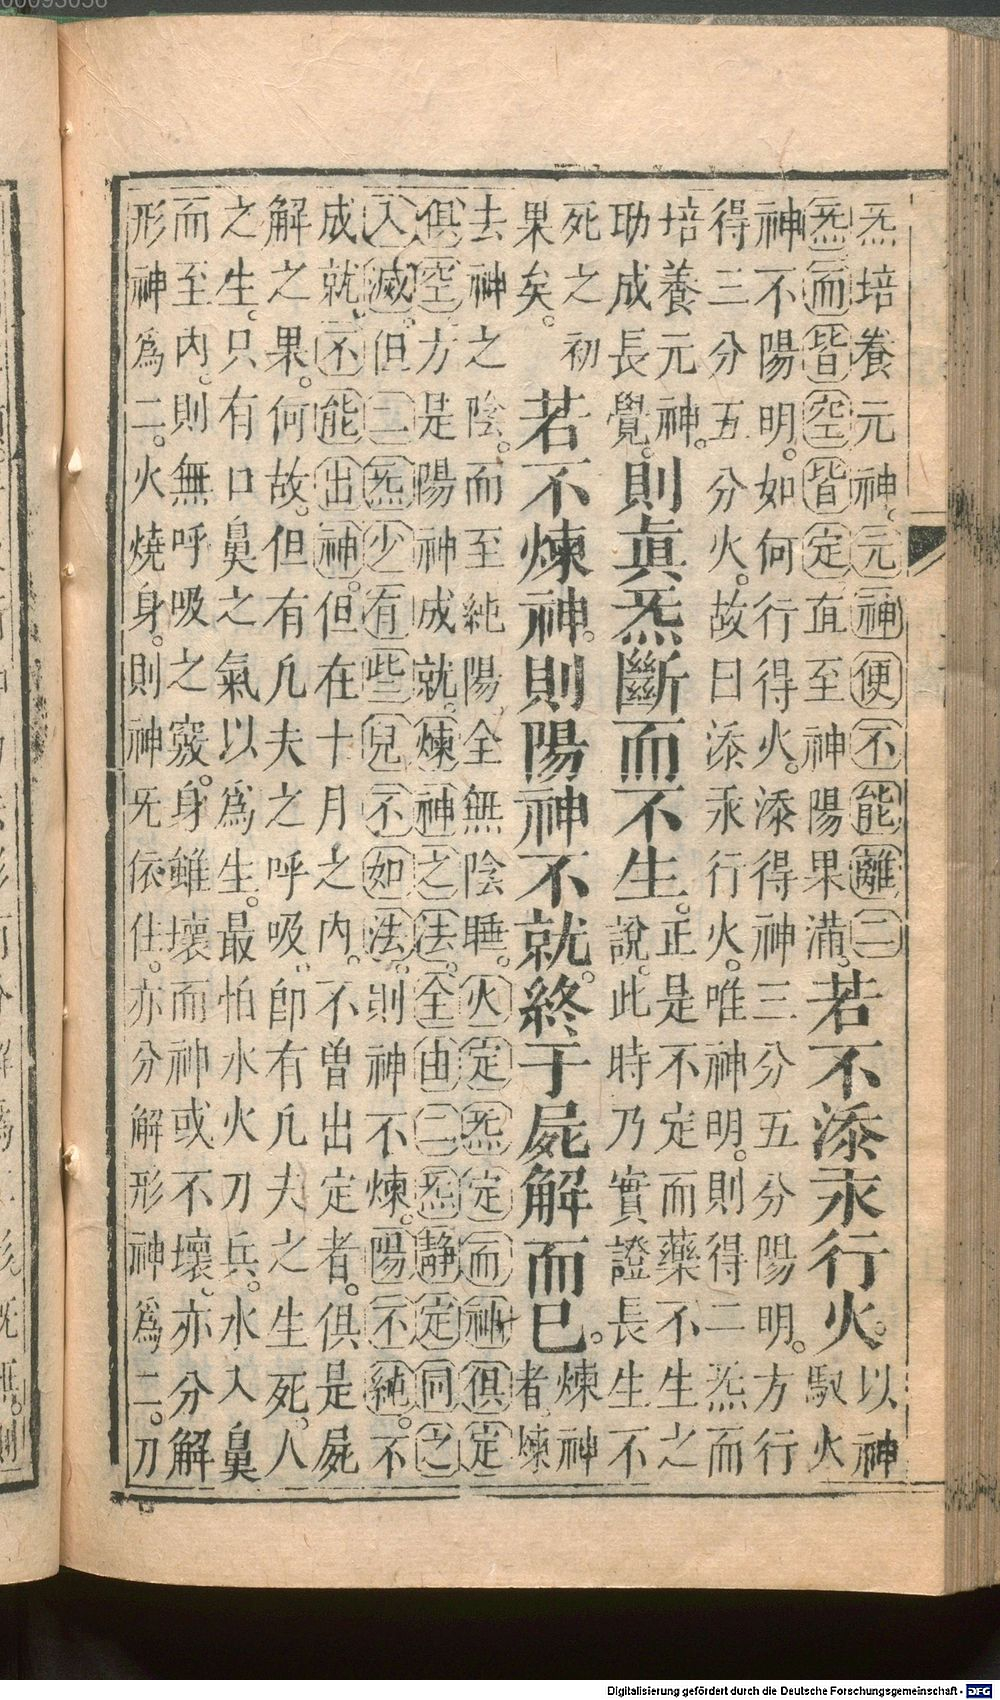 炁培養元神。元神便不能離二
炁而皆空皆定直至神陽果滿。
若不添汞行火。
以神
馭火
神不陽明。如何行得火。添得神三分五分陽明。方行
得三分五分火。故曰添汞行火。唯神明。則得二炁而
培養元神。
助成長覺。
則眞炁斷而不生。
正是不定而藥不生之
說。此時乃實證長生不
死之初
果矣。
若不煉神。則陽神不就。終于屍解而已。
煉神
者。煉
去神之陰。而至純陽。全無陰睡。火定炁定而神俱定
俱空方是陽神成就。煉神之法。全由二炁靜定同之
入滅。但二炁少有些兒不如法。則神不煉。陽不純。不
成就。不能出神。但在十月之內。不曽出定者。俱是屍
解之果。何故。但有凡夫之呼吸。卽有凡夫之生死。人
之生。只有口鼻之氣以爲生。最怕水火刀兵。水入鼻
而至內。則無呼吸之竅。身雖壞而神或不壞。亦分解
形神爲二。火燒身。則神旡依住。亦分解形神爲二。刀
Digitalisierung gefördert durch die Deutsche Forschungsgemeinschaft - DFG